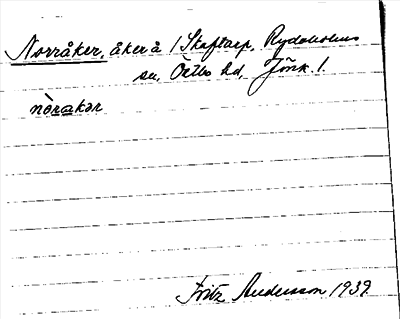 Norråker, åker å 1 Skaftarp, Rydaholms
sn, Östbo hd, Jönk. l.
nòrakər
Fritz Andersson 1939.